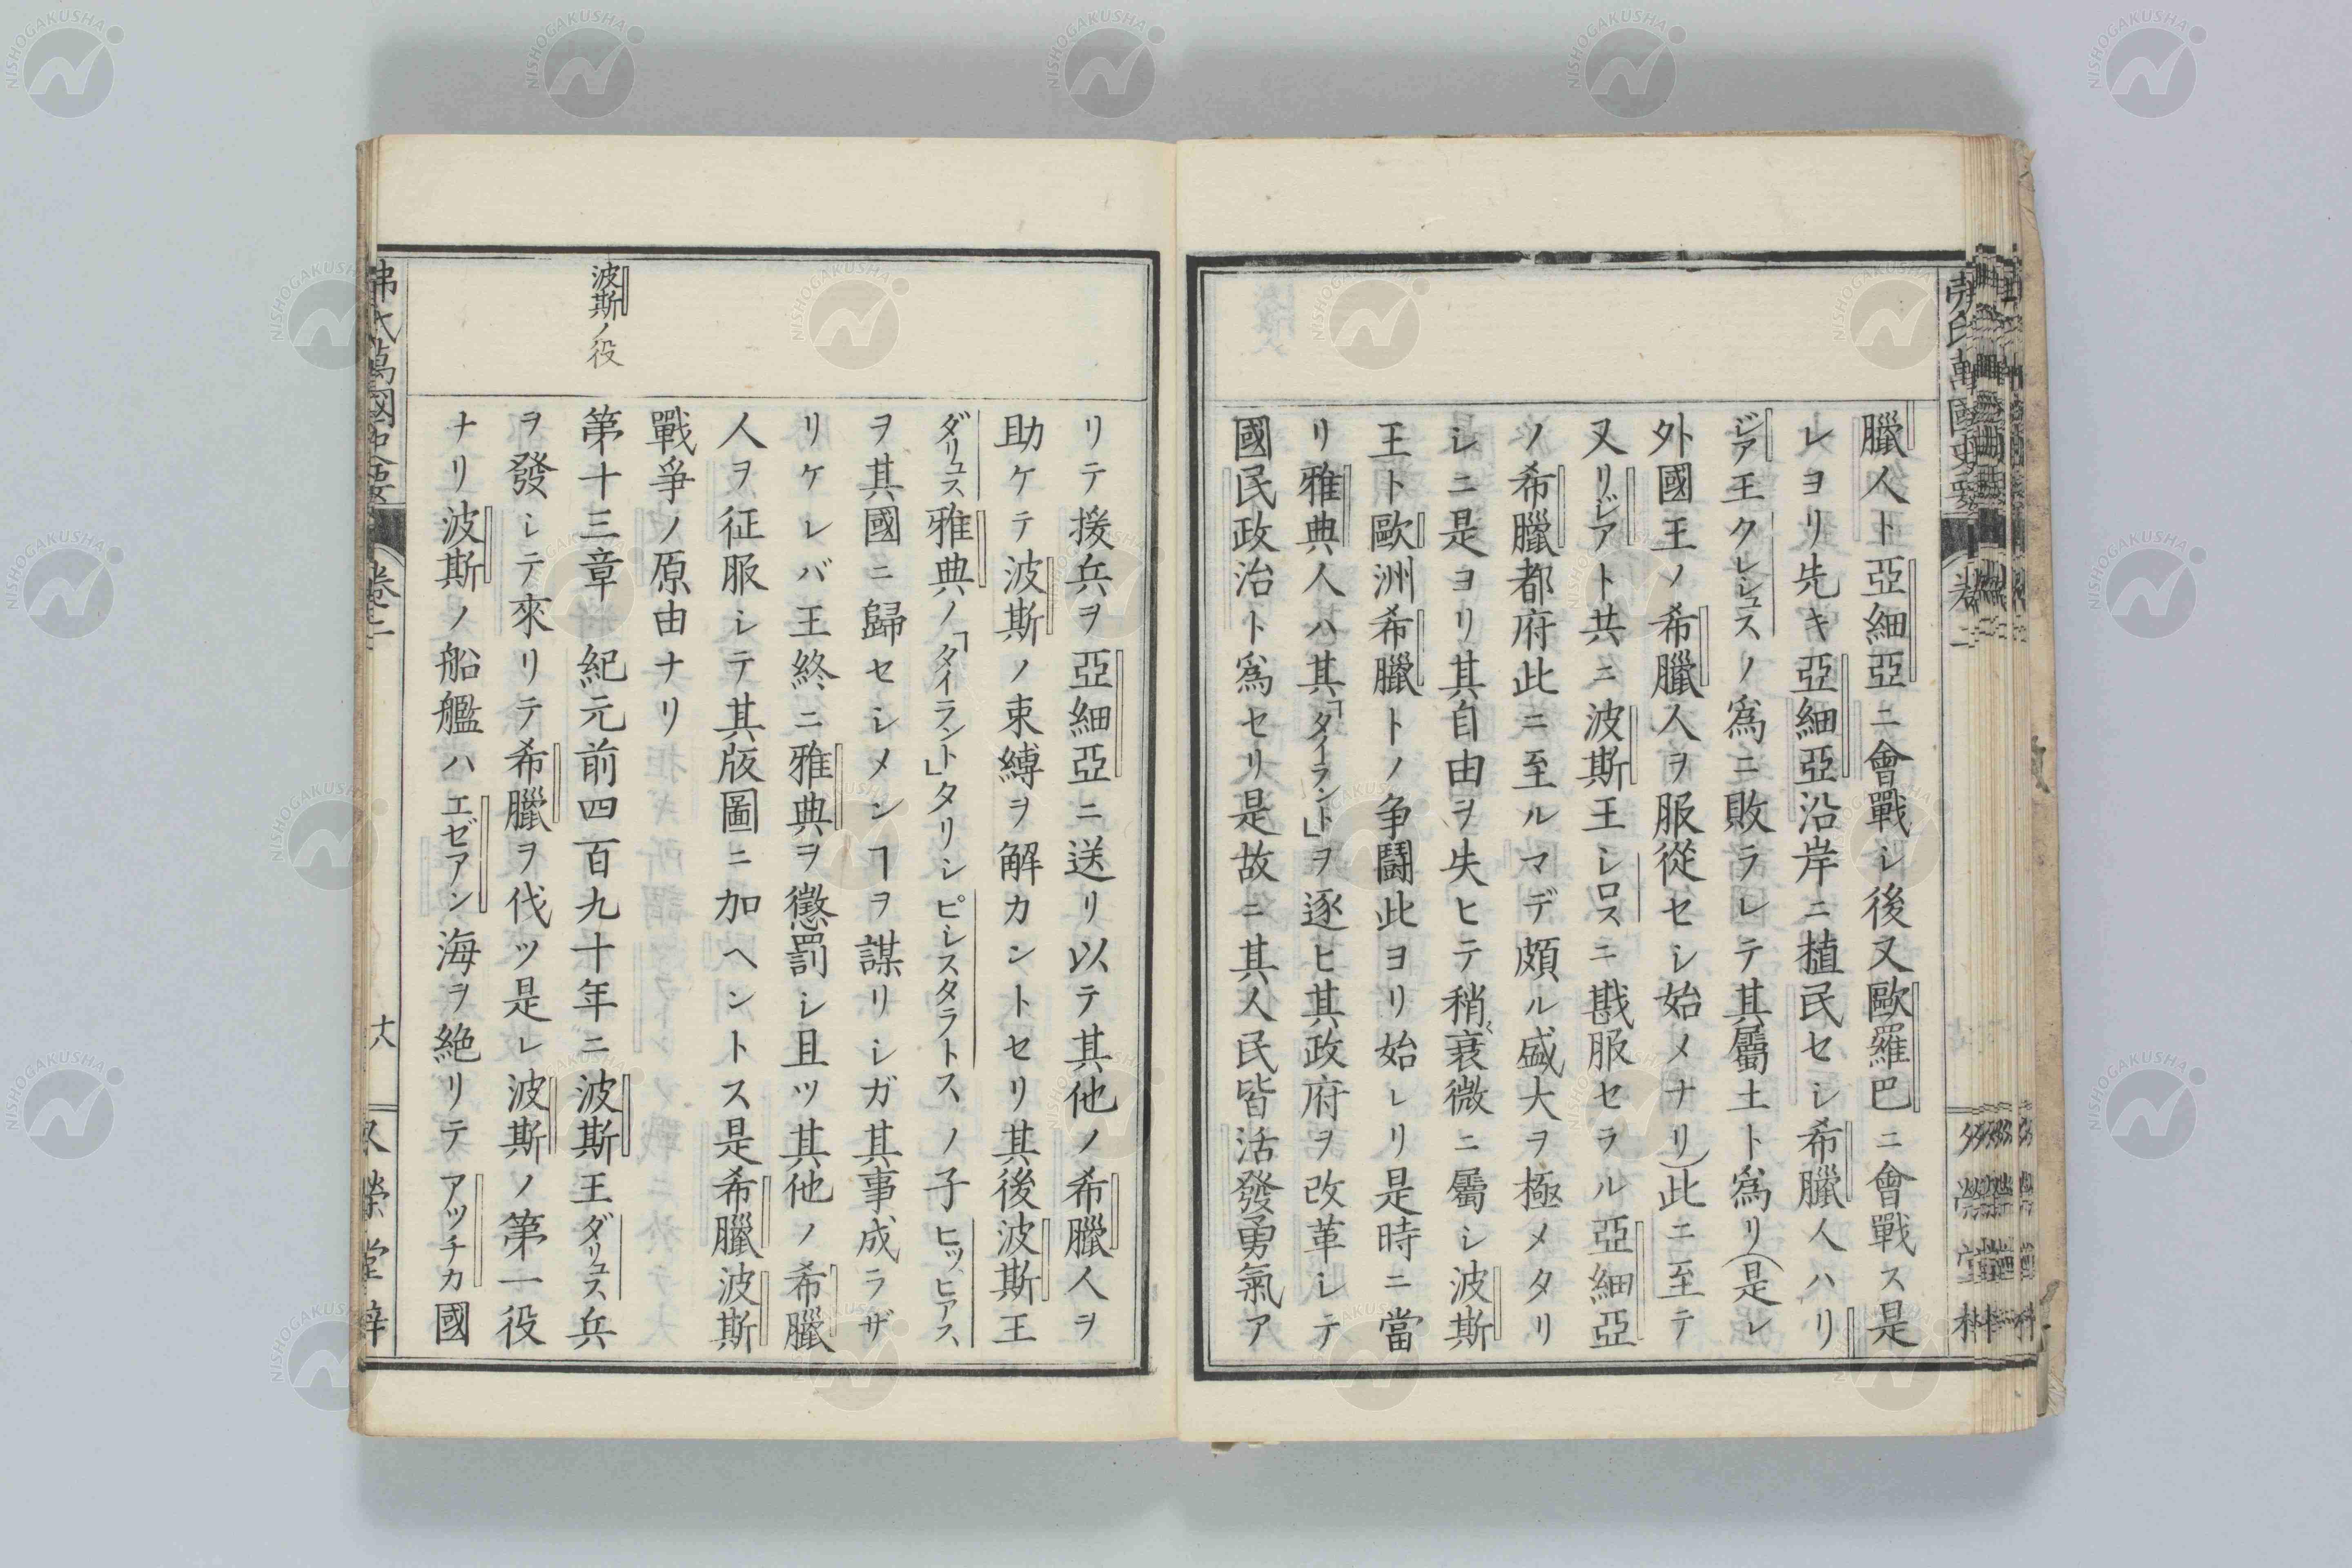 臘人ト亞細亞ニ會戰シ後又歐羅巴ニ會戰ス是
レヨリ先キ亞細亞沿岸ニ植民セシ希臘人ハリ
ジア王クレシュスノ爲ニ敗ラレテ其屬土ト爲リ(是レ
外國王ノ希臘人ヲ服從セシ始メナリ)此ニ至テ
又リジアト共ニ波斯王シロスニ戡服セラル亞細亞
ノ希臘都府此ニ至ルマデ頗ル盛大ヲ極メタリ
シニ是ヨリ其自由ヲ失ヒテ稍〻衰微ニ屬シ波斯
王ト歐洲希臘トノ争鬪此ヨリ始レリ是時ニ當
リ雅典人ハ其「タイラント」ヲ逐ヒ其政府ヲ改革シテ
國民政治ト爲セリ是故ニ其人民皆活發勇氣ア
波斯ノ役
リテ援兵ヲ亞細亞ニ送リ以テ其他ノ希臘人ヲ
助ケテ波斯ノ束縛ヲ解カントセリ其後波斯王
ダリュス雅典ノ「タイラント」タリシピシスタラトスノ子ヒッピアス
ヲ其國ニ歸セシメンヿヲ謀リシガ其事成ラザ
リケレバ王終ニ雅典ヲ懲罰シ且ツ其他ノ希臘
人ヲ征服シテ其版圖ニ加ヘントス是希臘波斯
戰爭ノ原由ナリ
第十三章 紀元前四百九十年ニ波斯王ダリュス兵
ヲ發シテ來リテ希臘ヲ伐ツ是レ波斯ノ第一役
ナリ波斯ノ船艦ハエゼアン海ヲ絶リテアッチカ國